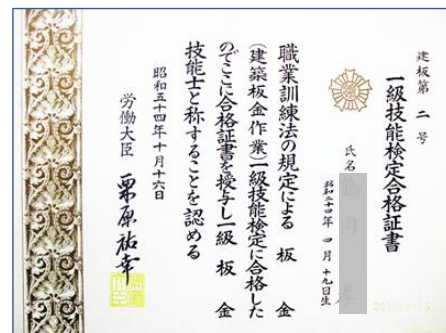 建板第 二 号
一級技能検定合格証書
氏名
昭和二十四年 四月 十九日生
職業訓練法の規定による 板 金
(建築板金作業)一級技能検定に合格した
のでここに合格証書を授与し一級 板 金
技能士と称することを認める
昭和五十四年十月十六日
労働大臣 栗原祐幸